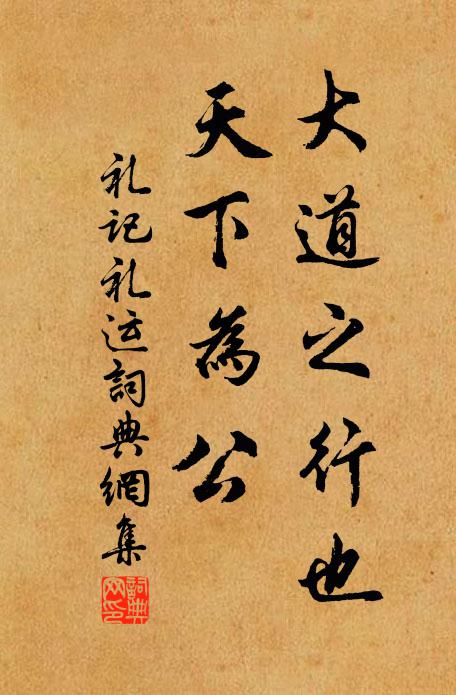 大道之行也
天下為公
礼记礼运詞典網集
詞典网印